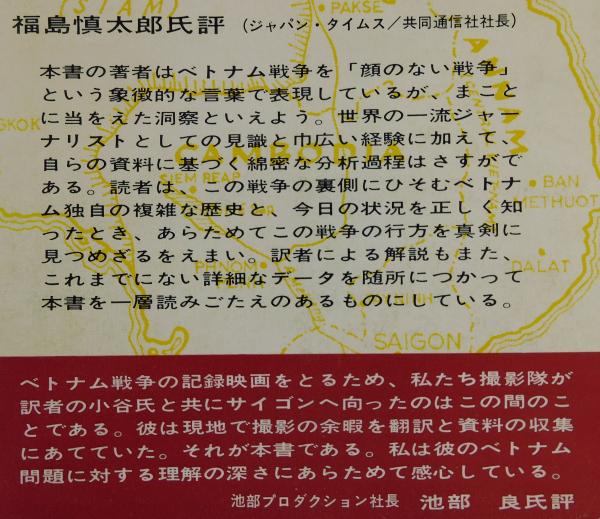 (SIAM)
PAKSE
福島慎太郎氏評 (ジャパン・タイムス/共同通信社社長)
本書の著者はベトナム戦争を「顔のない戦争」
という象徴的な言葉で表現しているが、まこと
に当をえた洞察といえよう。世界の一流ジャー
ナリストとしての見識と巾広い経験に加えて、
自らの資料に基づく綿密な分析過程はさすがで
ある。読者は、この戦争の裏側にひそむベトナ
ム独自の複雑な歴史と、今日の状況を正しく知
ったとき、あらためてこの戦争の行方を真剣に
見つめざるをえまい。訳者による解説もまた、
これまでにない詳細なデータを随所につかって
本書を一層読みごたえのあるものにしている。
ANNAM
CAMBODIA
SIEM REAP
BAN
METHUOT
PHNOM
DALAT
SAIGON
ベトナム戦争の記録映画をとるため、私たち撮影隊が
訳者の小谷氏と共にサイゴンへ向ったのはこの間のこ
とである。彼は現地で撮影の余暇を翻訳と資料の収集
にあてていた。それが本書である。私は彼のベトナム
問題に対する理解の深さにあらためて感心している。
池部プロダクション社長 池部 良氏評